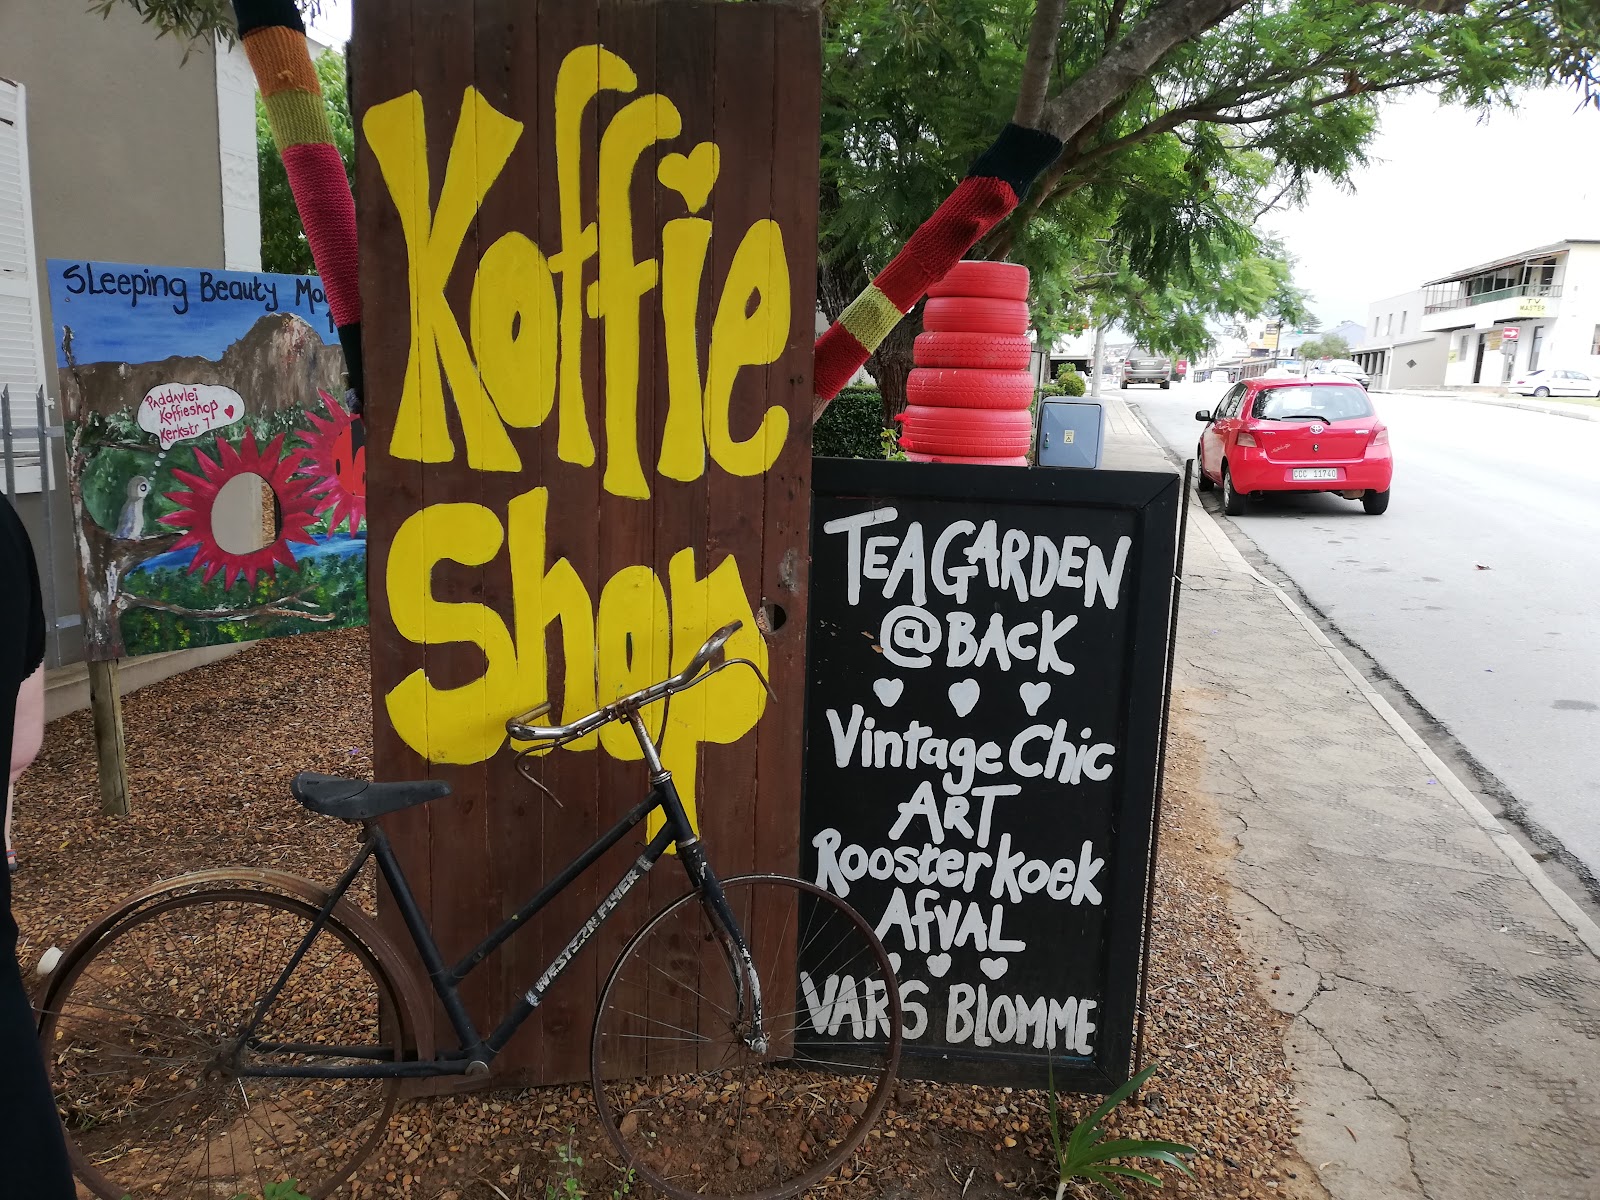 Koffie
Shop
Sleeping Beauty
Paddavlei
Koffieshop
Kerkstr 7
TEA GARDEN
@ BACK
Vintage Chic
ART
Roosterkoek
AfVAL
VARS BLOMME
WESTERN FLYER
CCC 11740
TV
MASTER